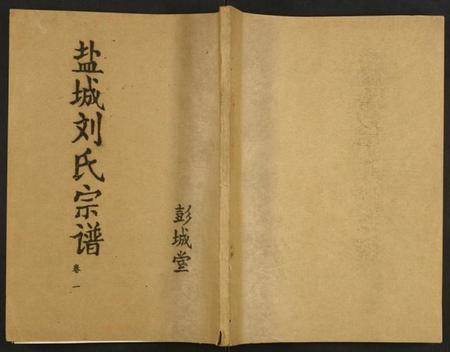 盐城刘氏宗谱
卷一
彭城堂